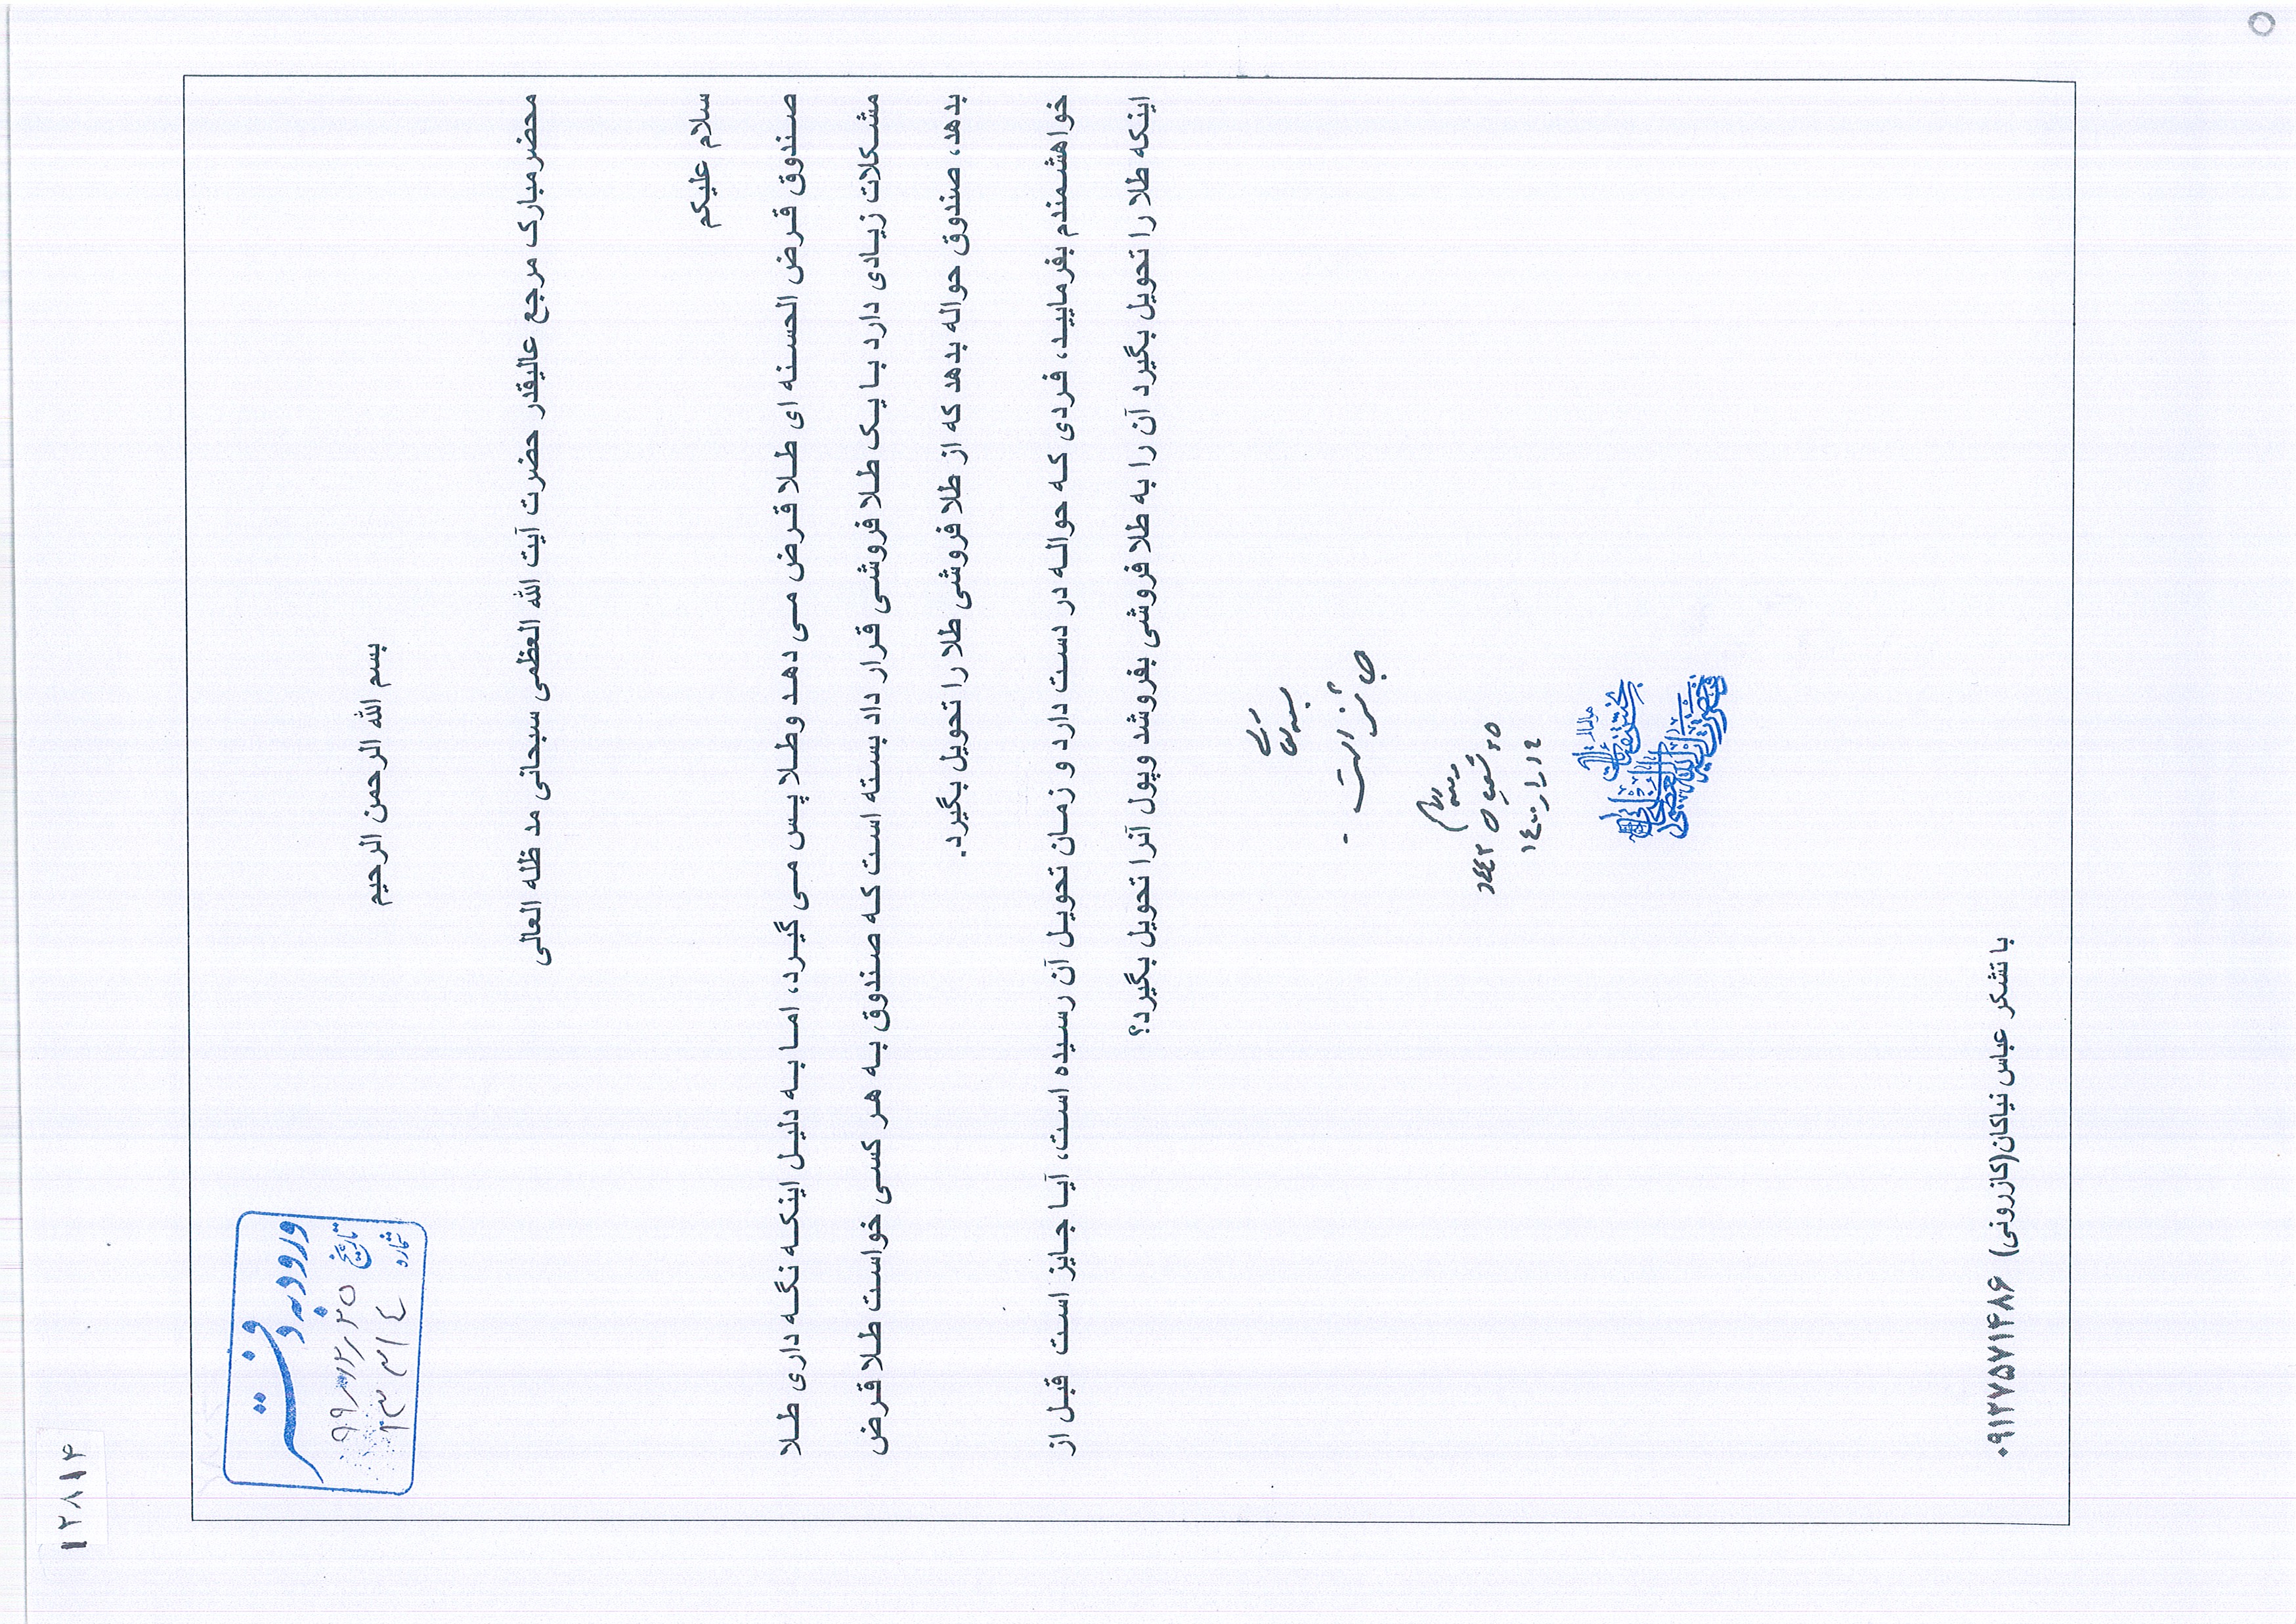 ۱۲۸۱۴
ورود به دفتر
تاریخ ۹۹/۱۲/۲۵
شماره ۱۳۳۱۴
بسم الله الرحمن الرحیم
محضر مبارک مرجع عالیقدر حضرت آیت الله العظمی سبحانی مد ظله العالی
سلام علیکم
صندوق قرض الحسنه ای طلا قرض می دهد وطلا پس می گیرد، اما به دلیل اینکه نگه داری طلا
مشکلات زیادی دارد با یک طلا فروشی قرار داد بسته است که صندوق به هر کسی خواست طلا قرض
بدهد، صندوق حواله بدهد که از طلا فروشی طلا را تحویل بگیرد.
خواهشمندم بفرمایید، فردی که حواله در دست دارد و زمان تحویل آن رسیده است، آیا جایز است قبل از
اینکه طلا را تحویل بگیرد آن را به طلا فروشی بفروشد وپول آنرا تحویل بگیرد؟
جائز است
۲۵ شعبان ۱۴۴۲
با تشکر عباس نیاکان(کازرونی) ۰۹۱۲۷۵۷۱۴۸۶